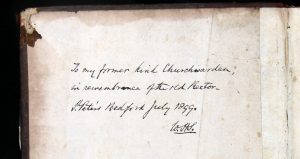 To my former kind Churchwarden,
in remembrance of the old Rector
St Peters Bedford July 1899.